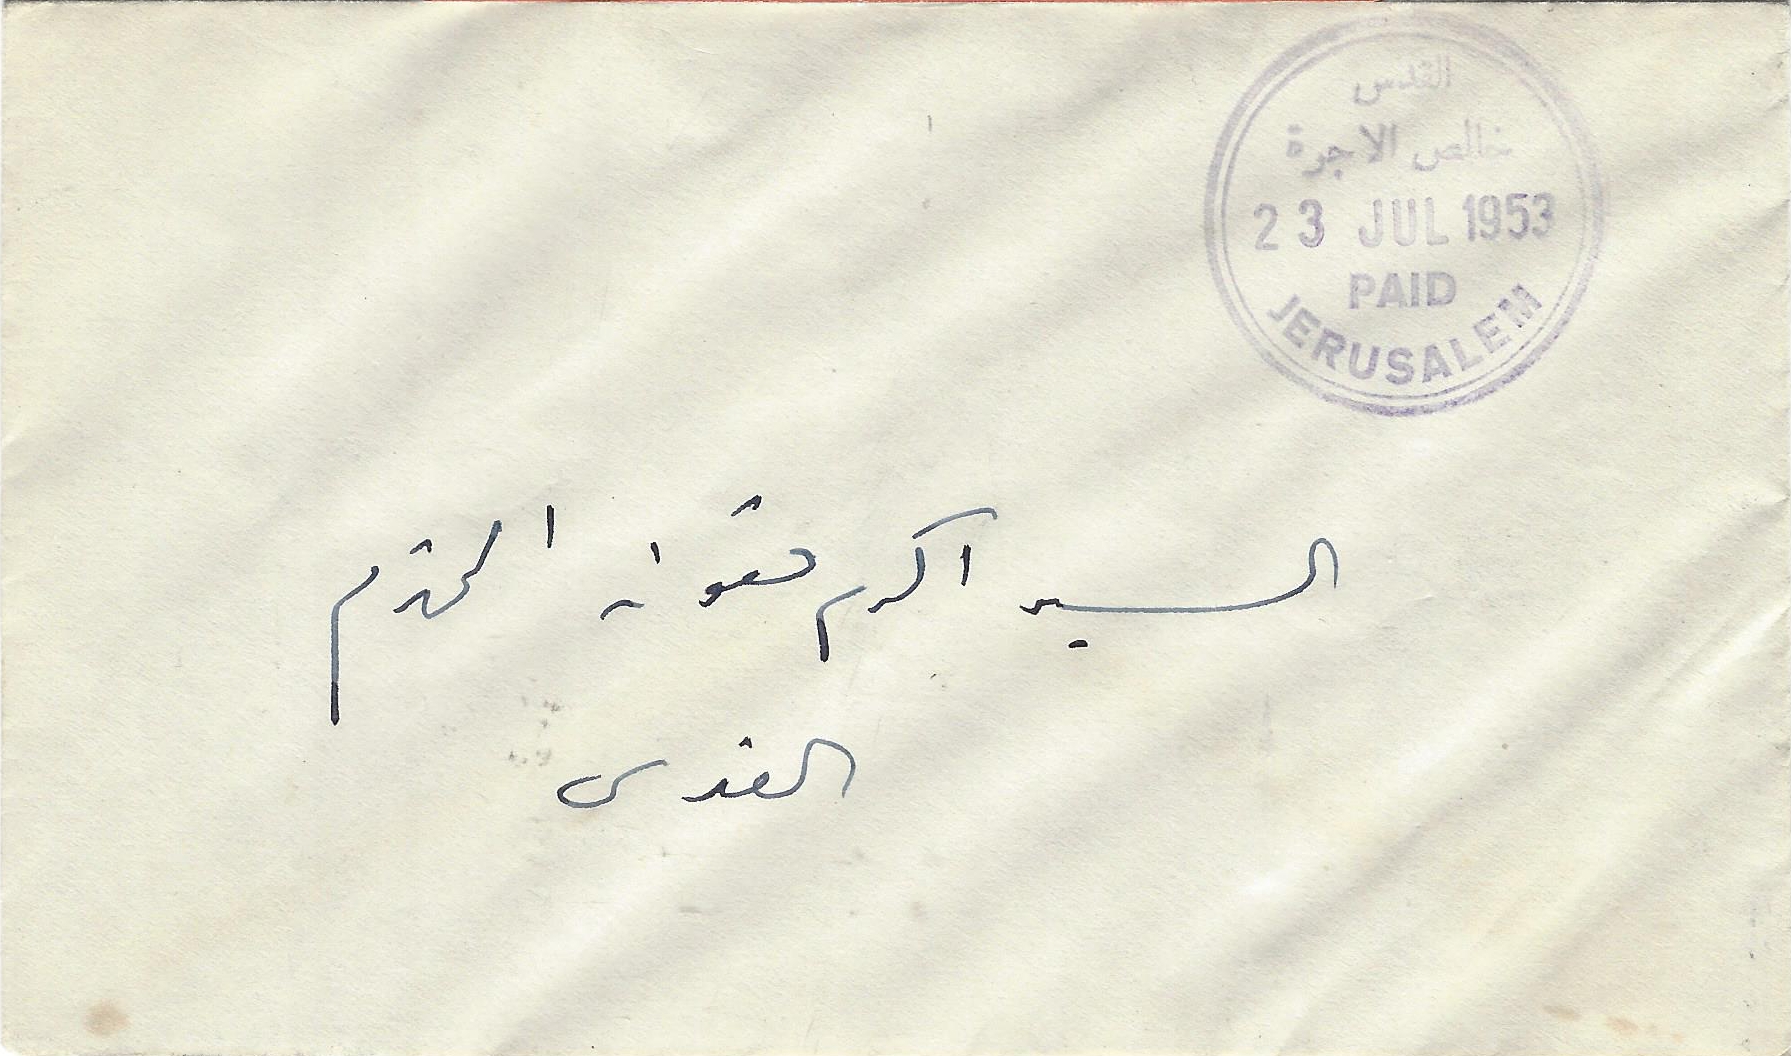 القدس
خالص الاجرة
23 JUL 1953
PAID
JERUSALEM
السيد اكرم المحترم
القدس